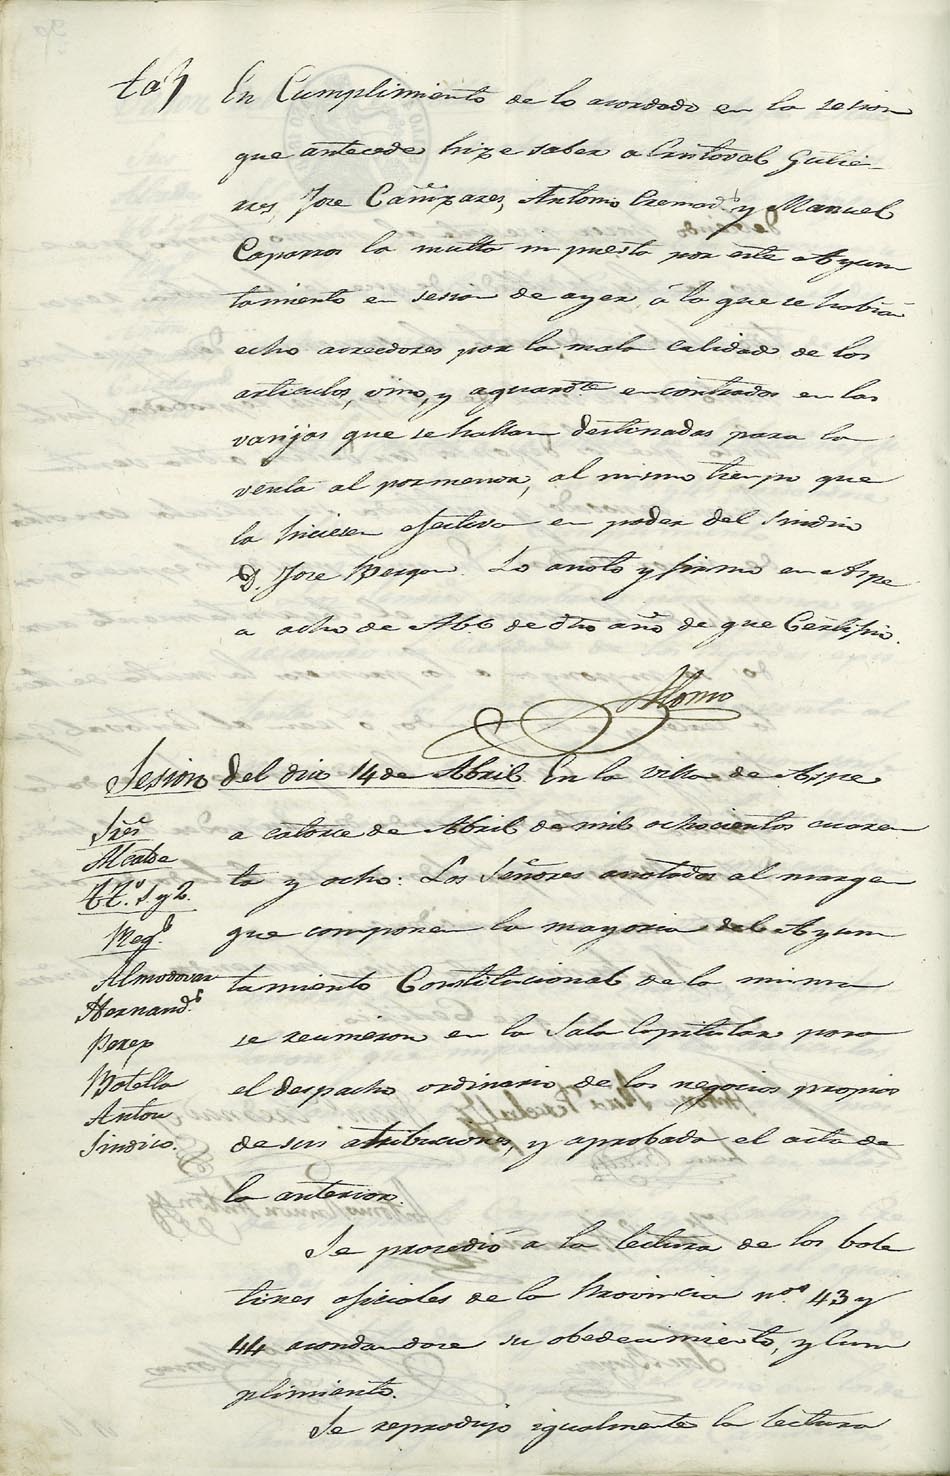 En Cumplimiento de lo acordado en la sesion
que antecede hize saber a Cristoval Gutie-
rres, Jose Cañizares, Antonio Cremads. y Manuel
Caparros la multa inpuesta por este Ayun
tamiento en sesion de ayer, á la que se habian
echo acreedores por la mala calidad de los
articulos, vino, y aguardte. encontrados en las
vasijas que se hallan destinadas para la
venta al pormenor, al mismo tiempo que
la hiciesen efectiva en poder del Sindico
D. Jose . Lo anoto y firmo en Aspe
a ocho de Abl. de dho año de que Certifico.
Alonso
Sesion del dia 14 de Abril. En la villa de Aspe
Sres.
Alcalde
TTs. 1 y 2.
Regs.
Almodovar
Hernands.
Perez
Botella
Anton
Sindico.
a catorce de Abril de mil ochocientos cuaren
ta y ocho: Los Señores anotados al margen
que componen la mayoria del Ayun
tamiento Constitucional de la misma
se reunieron en la Sala Capitular para
el despacho ordinario de los negocios propios
de sus atribuciones, y aprobada el acta de
la anterior.
Se procedió a la lectura de los bole
tines oficiales de la Provincia nos. 43 y
44 acordandose su obedecimiento, y Cum
plimiento.
Se reprodujo igualmente la lectura